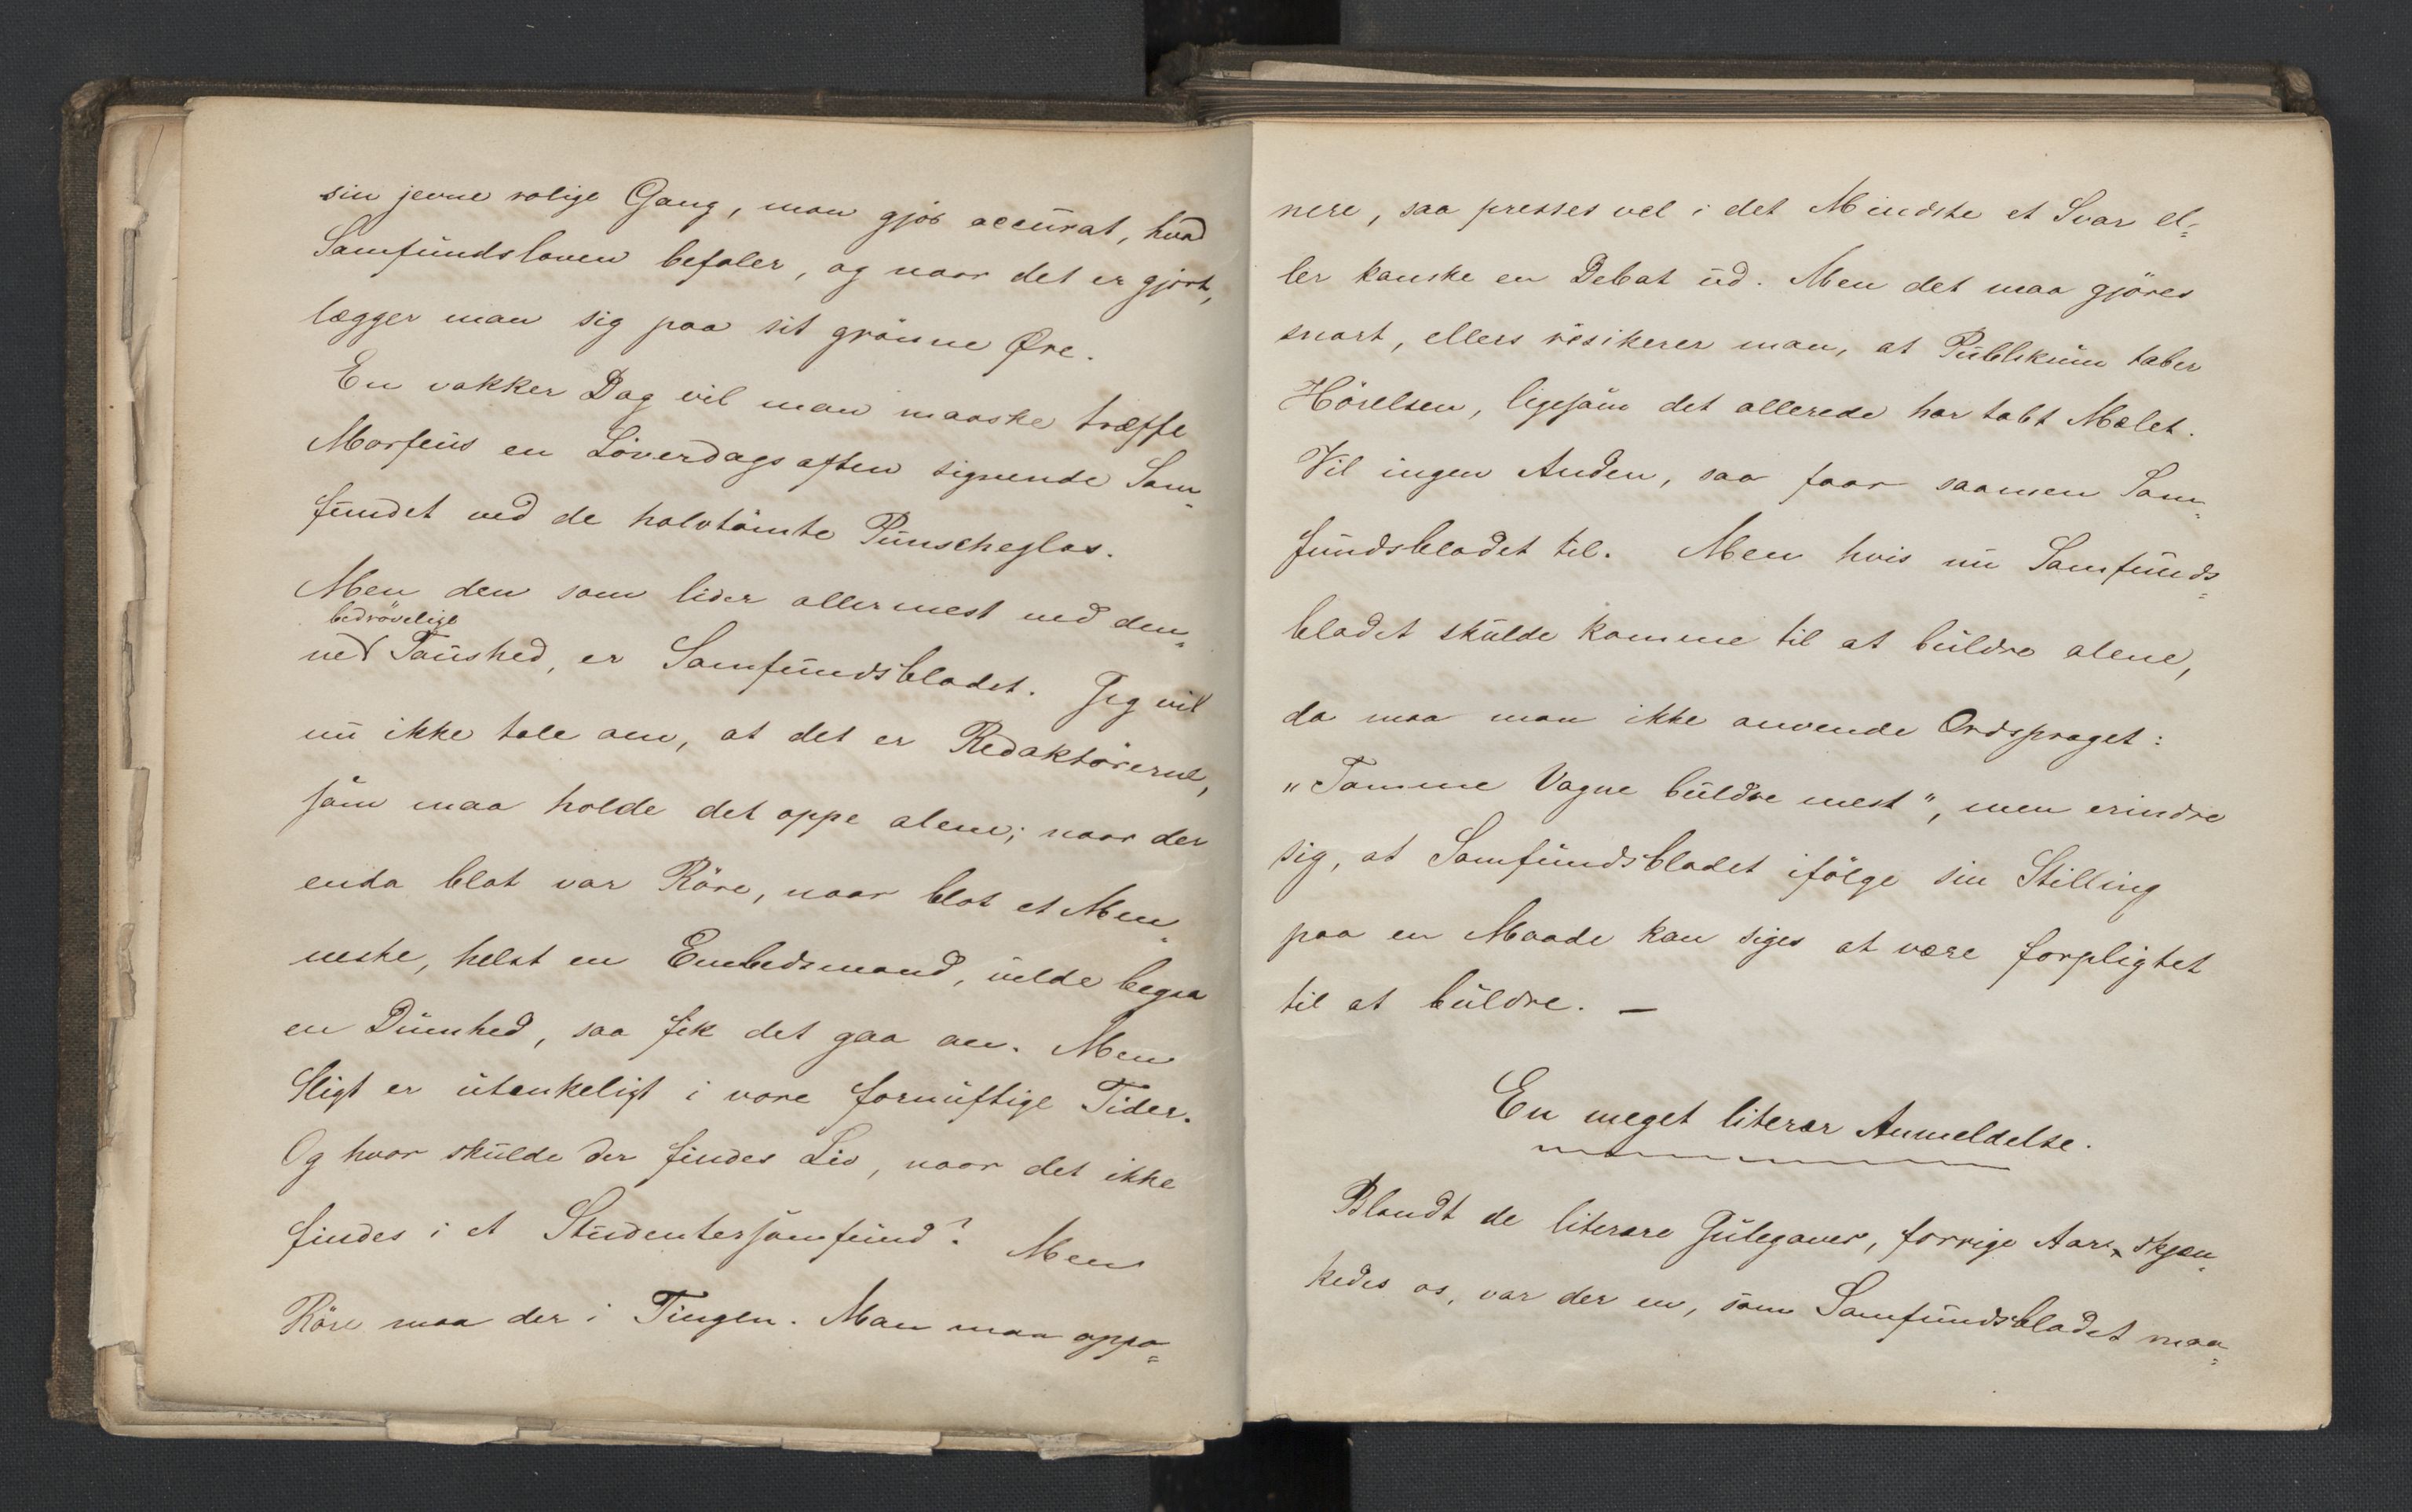 sin jevne rolige Gang, man gjör accurat, hvad
Samfundsloven befaler, og naar det er gjort,
lægger man sig paa sit grönne Øre.
En vakker Dag vil man maaske træffe
Morfeus en Löverdagsaften signende Sam-
fundet ved de halvtömte Punscheglas.
Men den som lider allermest ved den-
bedrövelige
ne Taushed, er Samfundsbladet. Jeg vil
nu ikke tale om, at det er Redaktörerne,
som maa holde det oppe alene; naar der
enda blot var Röre, naar blot et Men-
neske, helst en Embedsmand, vilde begaa
en Dumhed, saa fik det gaa an. Men
Sligt er utænkeligt i vore fornuftige Tider.
Og hvor skulde der findes Liv, naar det ikke
findes i et Studentersamfund? Men
Röre maa der i Tingen. Man maa oppo=
nere, saa presses vel i det Mindste et Svar el=
ler kanske en Debat ud. Men det maa gjöres
snart, ellers risikerer man, at Publikum taber
Hörelsen, ligesom det allerede har tabt Mælet.
Vil ingen Anden, saa faar saamen Sam=
fundsbladet til. Men hvis nu Samfunds=
bladet skulde komme til at buldre alene,
da maa man ikke anvende Ordsproget:
"Tomme Vogne buldre mest", men erindre
sig, at Samfundsbladet ifölge sin Stilling
paa en Maade kan siges at være forpligtet
til at buldre. —
En meget literær Anmeldelse.
Blandt de literære Julegaver, forrige Aar skjæn=
kedes os, var der en, som Samfundsbladet maa=